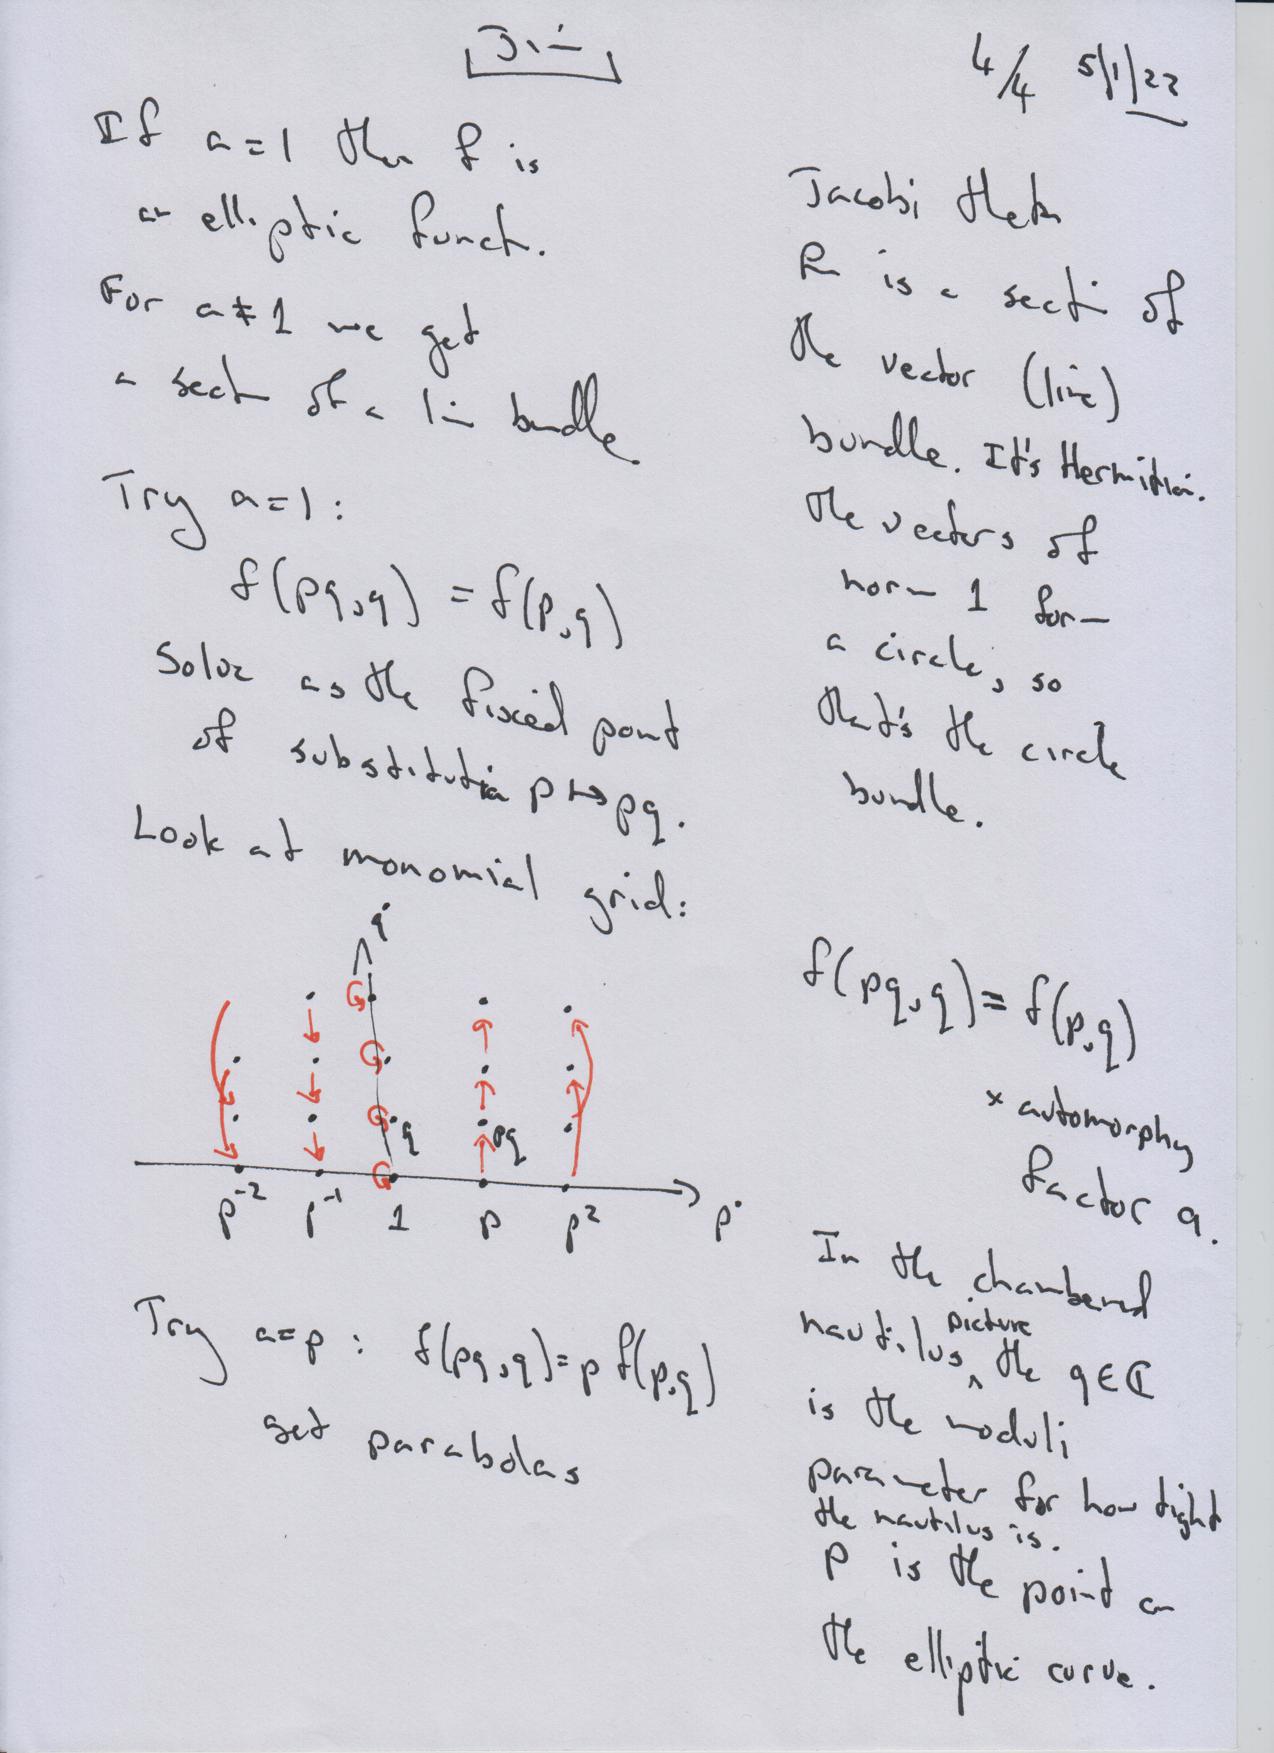 Jim
4/4 5/1/22
If a=1 then f is
an elliptic funct.
For a≠1 we get
a sectn of a lin bundle.
Try a=1:
f(pq,q) = f(p,q)
Solve as the fixed point
of substitution p↦pq.
Look at monomial grid:
q^·
q
pq
p^-2 p^-1 1 p p^2 p^·
Try a=p: f(pq,q)=p f(p,q)
get parabolas
Jacobi theta
fn is a sectn of
the vector (line)
bundle. It's Hermitian.
The vectors of
norm 1 form
a circle, so
that's the circle
bundle.
f(pq,q) = f(p,q)
× automorphy
factor a.
In the chambered
nautilus picture the q∈ℂ
is the moduli
parameter for how tight
the nautilus is.
P is the point on
the elliptic curve.